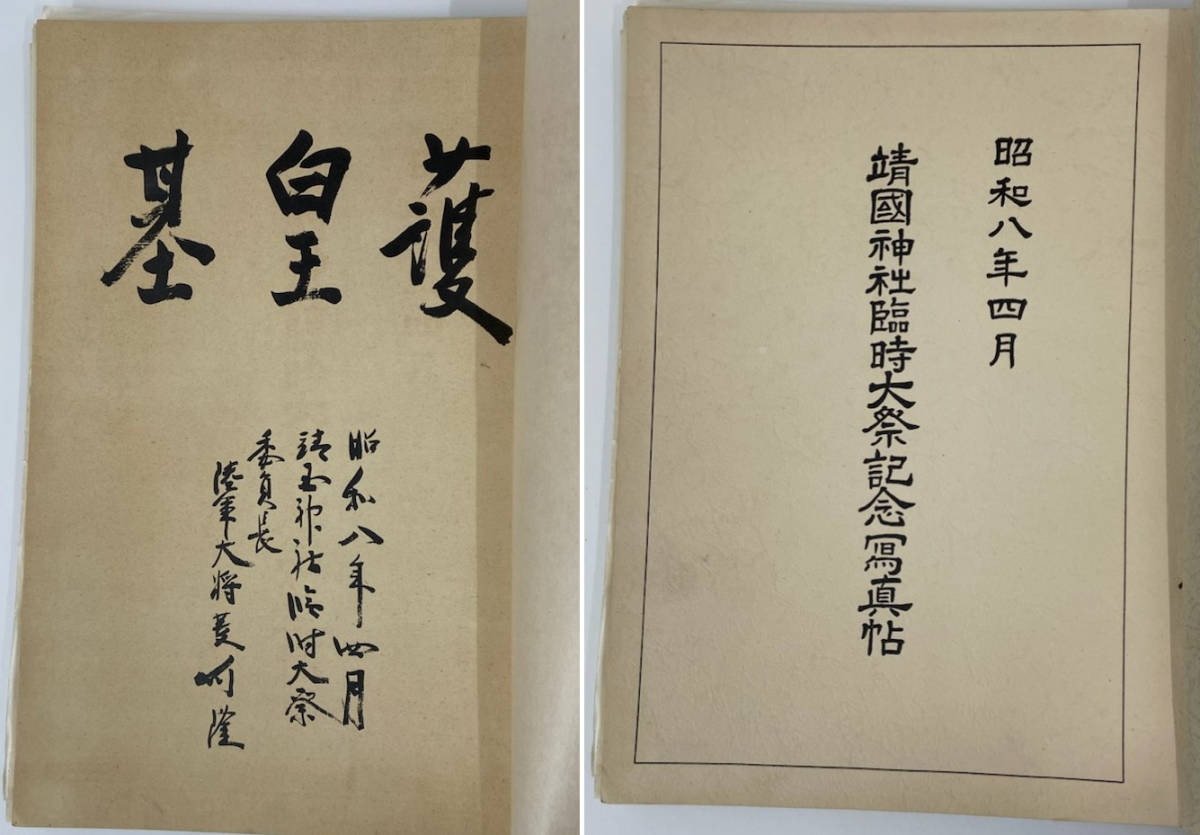 護皇基
昭和八年四月
靖国神社臨時大祭
委員長
陸軍大将菱刈隆
昭和八年四月
靖國神社臨時大祭記念冩真帖